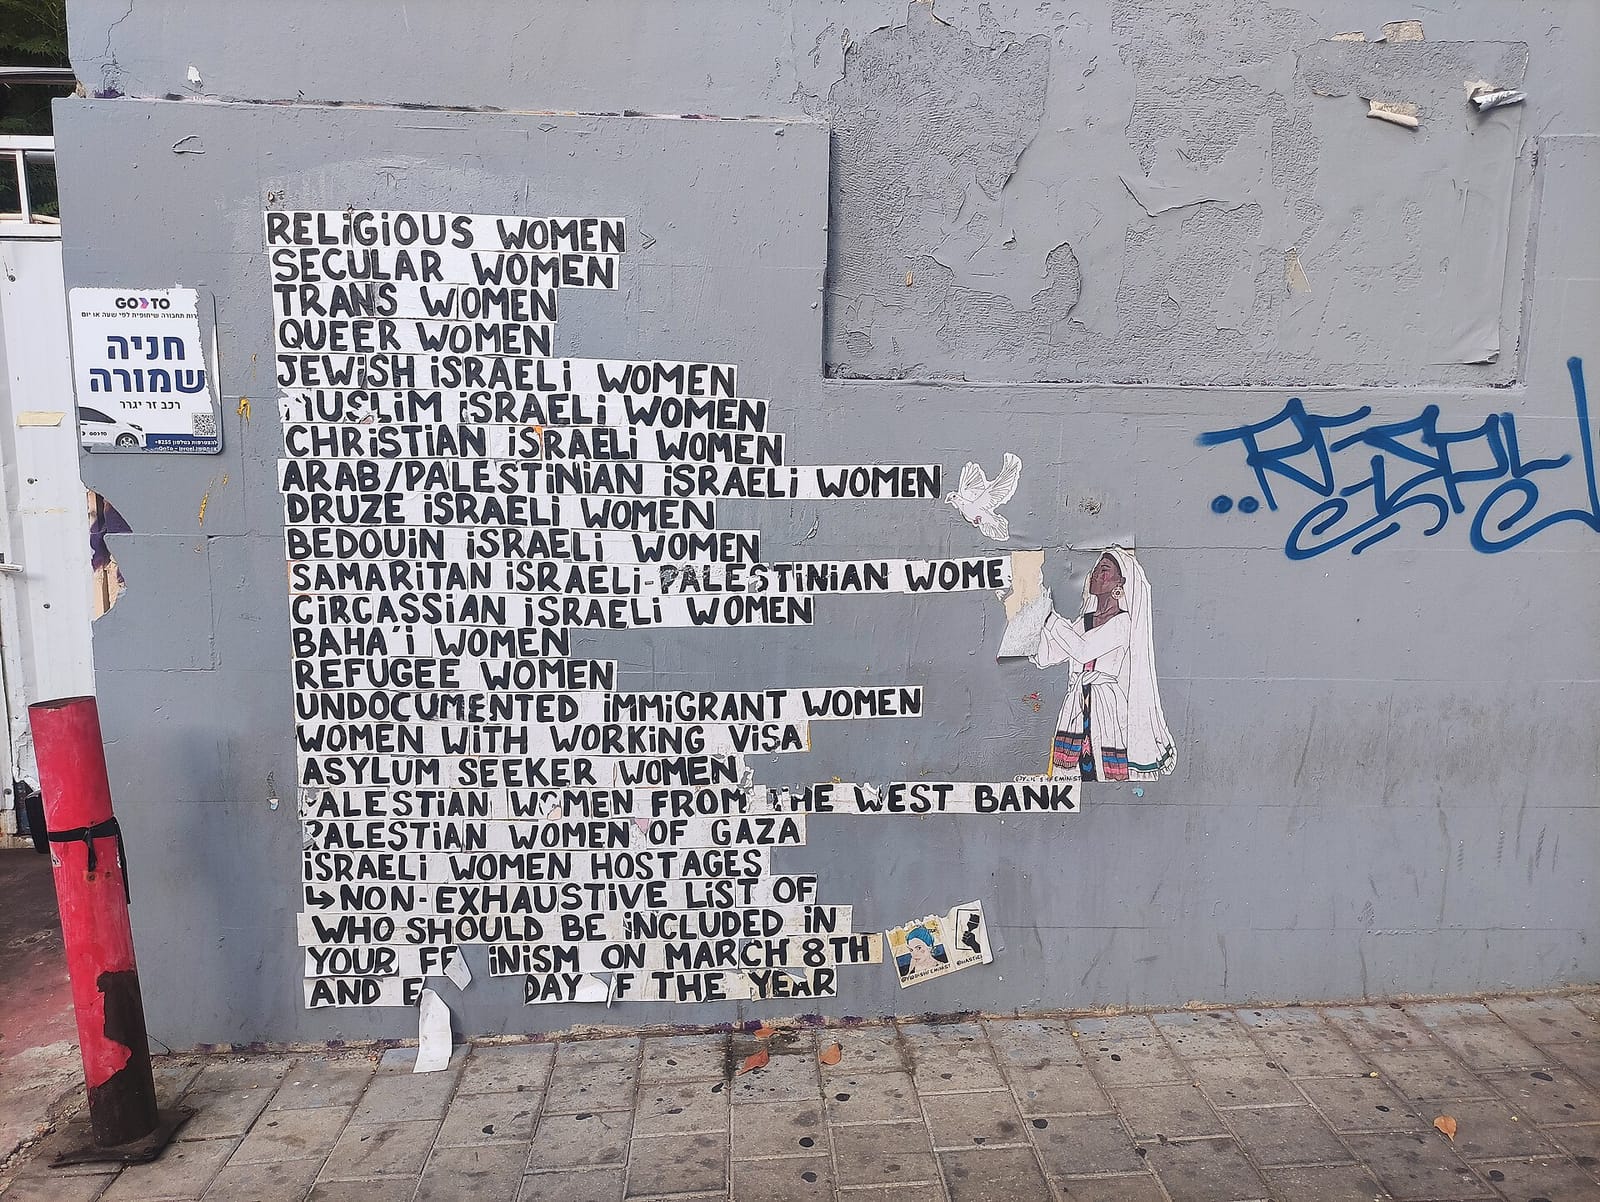 RELiGiOUS WOMEN
SECULAR WOMEN
TRANS WOMEN
QUEER WOMEN
JEWiSH iSRAELi WOMEN
MUSLiM iSRAELi WOMEN
CHRiSTiAN iSRAELi WOMEN
ARAB/PALESTiNiAN iSRAELi WOMEN
DRUZE iSRAELi WOMEN
BEDOUiN iSRAELi WOMEN
SAMARiTAN iSRAELi-PALESTiNiAN WOME
CiRCASSiAN iSRAELi WOMEN
BAHA'i WOMEN
REFUGEE WOMEN
UNDOCUMENTED iMMiGRANT WOMEN
WOMEN WiTH WORKiNG ViSA
ASYLUM SEEKER WOMEN
PALESTiAN WOMEN FROM THE WEST BANK
PALESTiAN WOMEN OF GAZA
iSRAELi WOMEN HOSTAGES
↳NON-EXHAUSTiVE LiST OF
WHO SHOULD BE iNCLUDED iN
YOUR FE iNiSM ON MARCH 8TH
AND E DAY F THE YEAR
GOTO
תחבורה שיתופית לפי שעה או יום
חניה
שמורה
רכב זר יגרר
GOTO
@YIDDISHFEMINIST